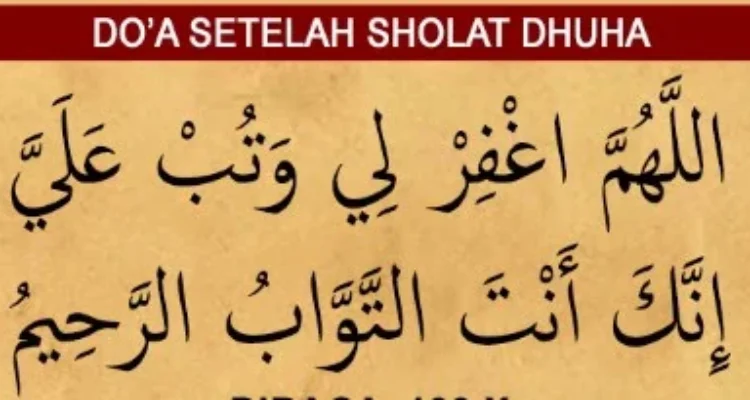 DO'A SETELAH SHOLAT DHUHA
اللَّهُمَّ اغْفِرْ لِي وَتُبْ عَلَيَّ
إِنَّكَ أَنْتَ التَّوَّابُ الرَّحِيمُ